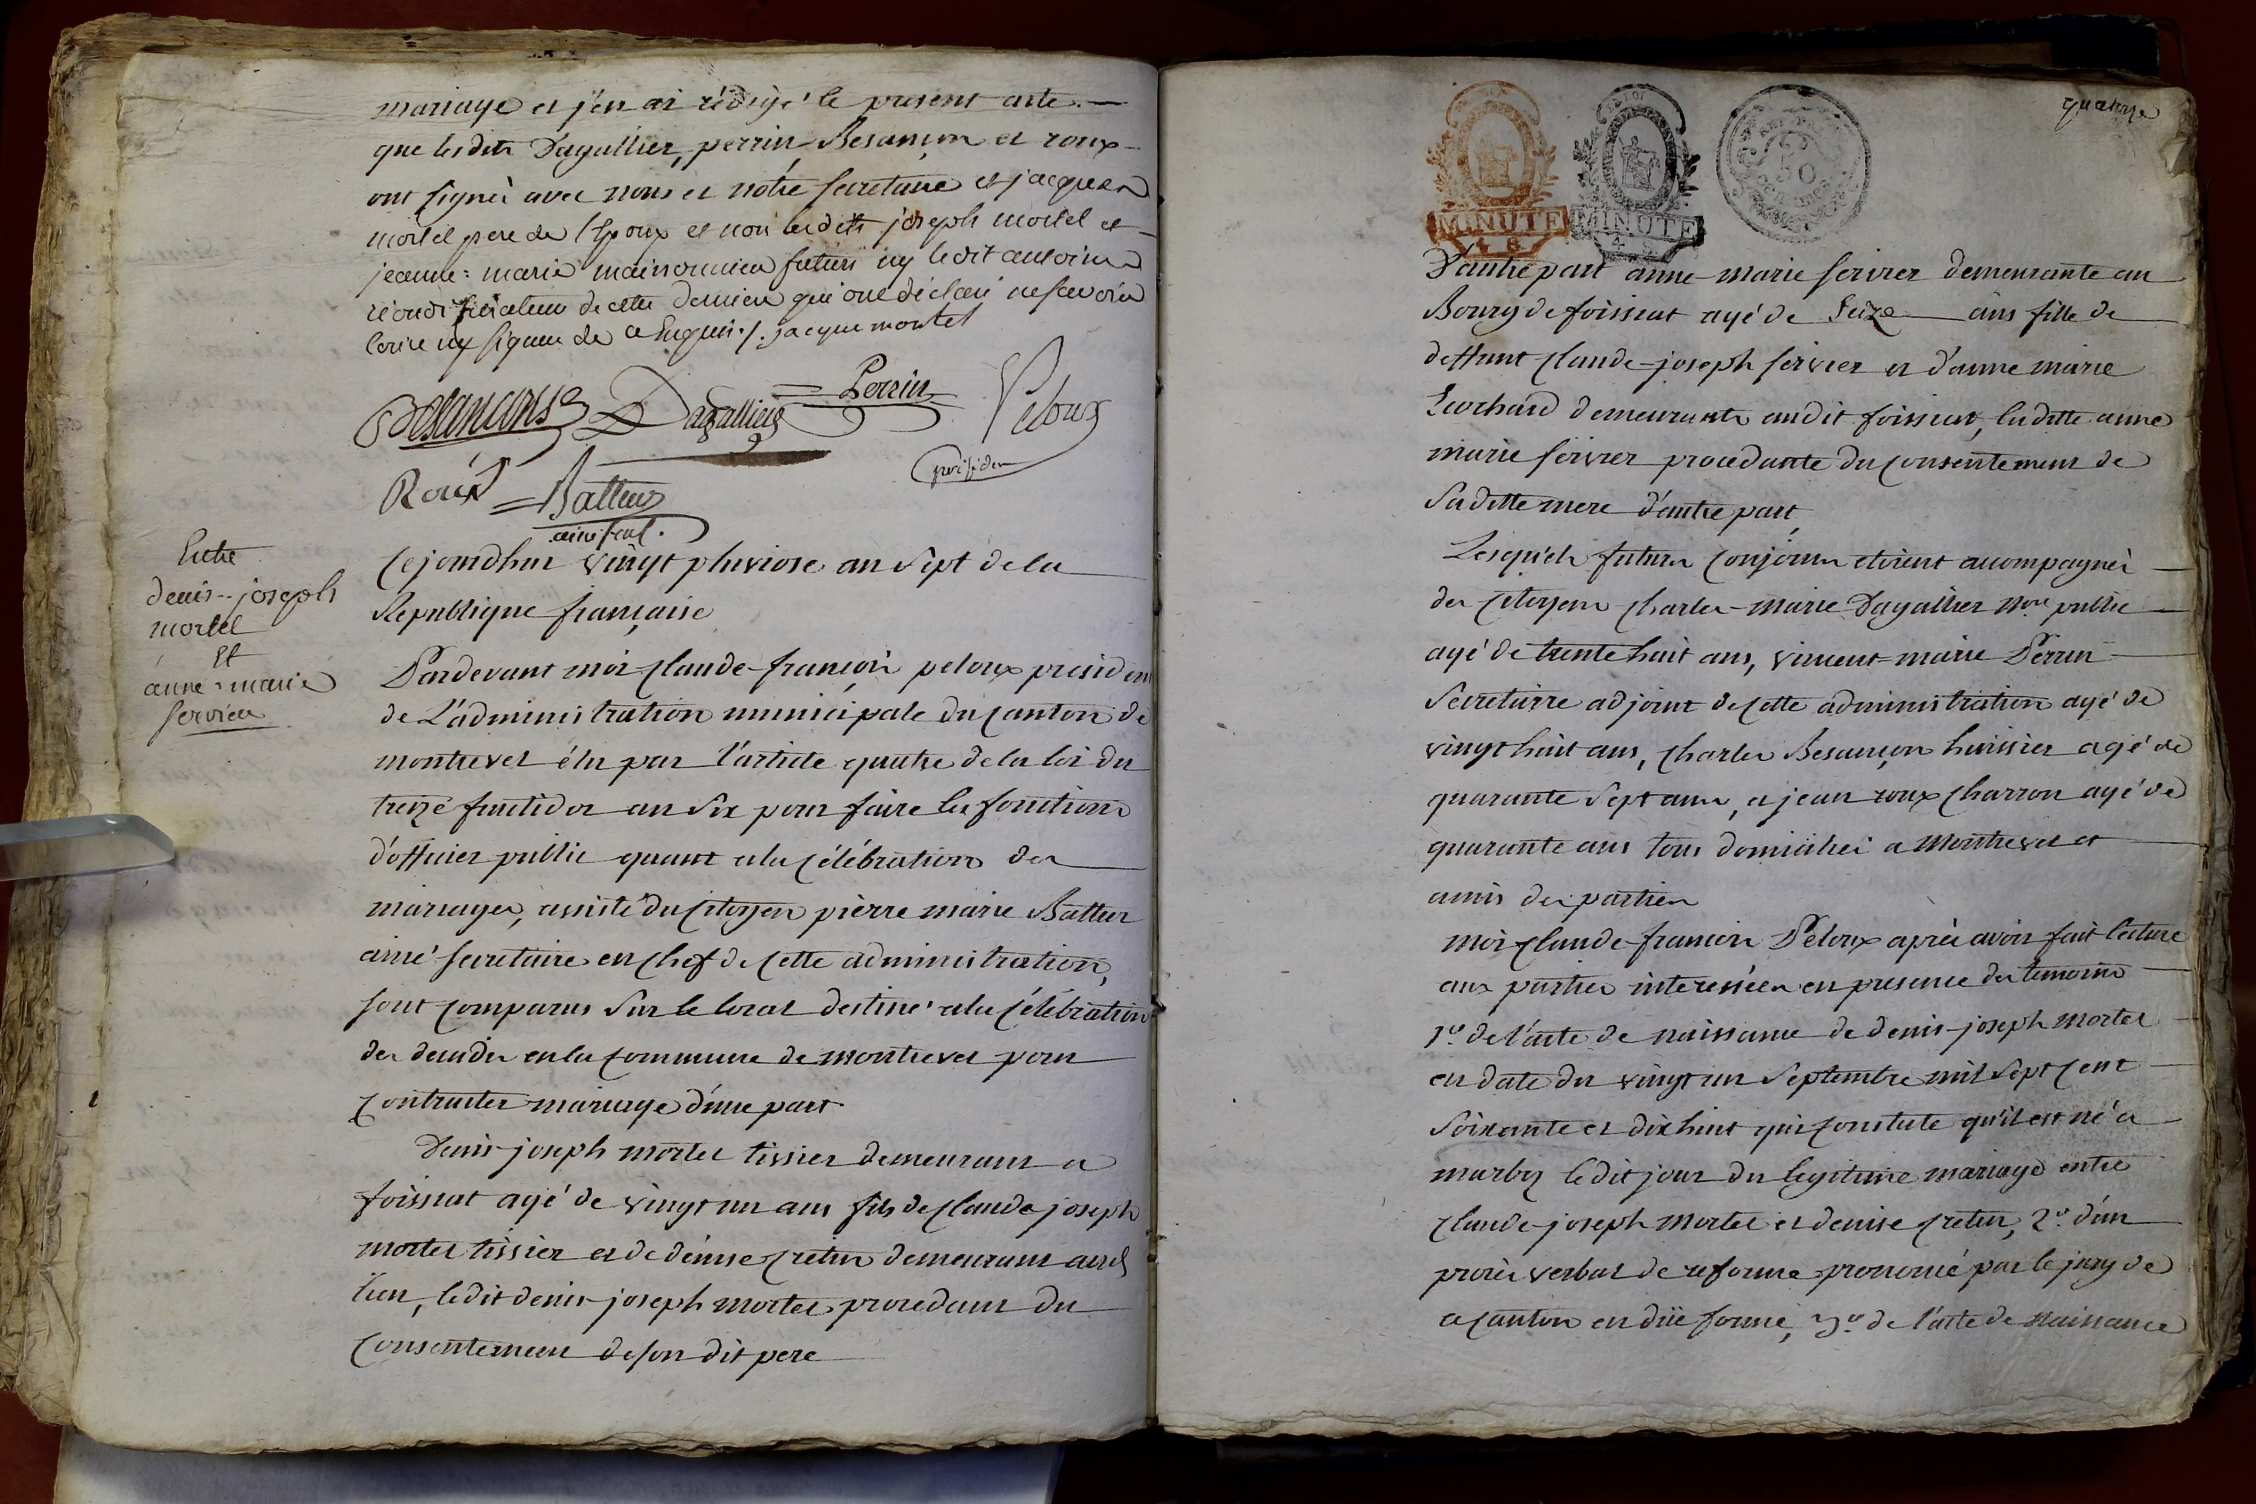 mariage et j'en ai rédigé le present acte. —
que lesdits Dagallier, perrin, Besançon et roux
ont signés avec nous et nôtre secretaire et jacques
mortel pere de l'Epoux et non lesdits joseph mortel et
jeanne = marie maisonnieu futurs ny ledit antoine
de cette derniere qui ont déclaré ne scavoir
Ecrire ny signer de ce Enquis ./. jacque mortel
Besancon Dagallier Perrin Peloux
president
Roux = Batteur
ainé secret.
Entre
denis-joseph
mortel
Et
anne-marie
servier
Cejourdhui vingt pluviose an sept de la
Republique française
Pardevant moi Claude-françois peloux president
de L'administration municipale du Canton de
montrevel élu par l'article quatre de la loi du
treize fructidor an six pour faire les fonctions
d'officier public quant a la Célébration des
mariages, assisté du Citoyen pièrre marie Batteur
ainé secretaire en Chef de Cette administration,
sont Comparus sur le local destiné a la Célébration
des decadis en la Commune de montrevel pour
Contracter mariage d'une part
Denis-joseph mortel tissier demeurant a
foissiat agé de vingt un ans fils de Claude joseph
mortel tissier et de dénise Cretin demeurant aud
lieu, ledit denis-joseph mortel procedant du
Consentement de son dit pere
quatorze
MINUTE MINUTE 50
D'autre part anne-marie servier demeurante au
Bourg de foissiat agé de Seize ans fille de
deffunt Claude-joseph servier et d'anne marie
demeurante audit foissiat, laditte anne
marie servier procedante du Consentement de
saditte mere d'autre part,
Lesquels futurs Conjoints etoient accompagnés
des Citoyens Charles-marie Dagallier Nore public
agé de trente huit ans, vincent-marie Perrin
Secretaire adjoint de Cette administration agé de
vingt huit ans, Charles Besançon huissier agé de
quarante sept ans, et jean roux Charron agé de
quarante ans tous domiciliés a Montrevel et
amis des parties
Moi Claude-françois Peloux après avoir fait lecture
aux parties interessées en presence des temoins
1o. de l'acte de naissance de denis-joseph mortel
en date du vingt un septembre mil sept Cent
soixante et dix huit qui Constate qu'il est né a
marboz ledit jour du legitime mariage entre
Claude-joseph Mortel et denise Cretin, 2o. d'un
procès verbal de reforme prononcé par le jury de
ce Canton en düe forme, 3o. de l'acte de Naissance